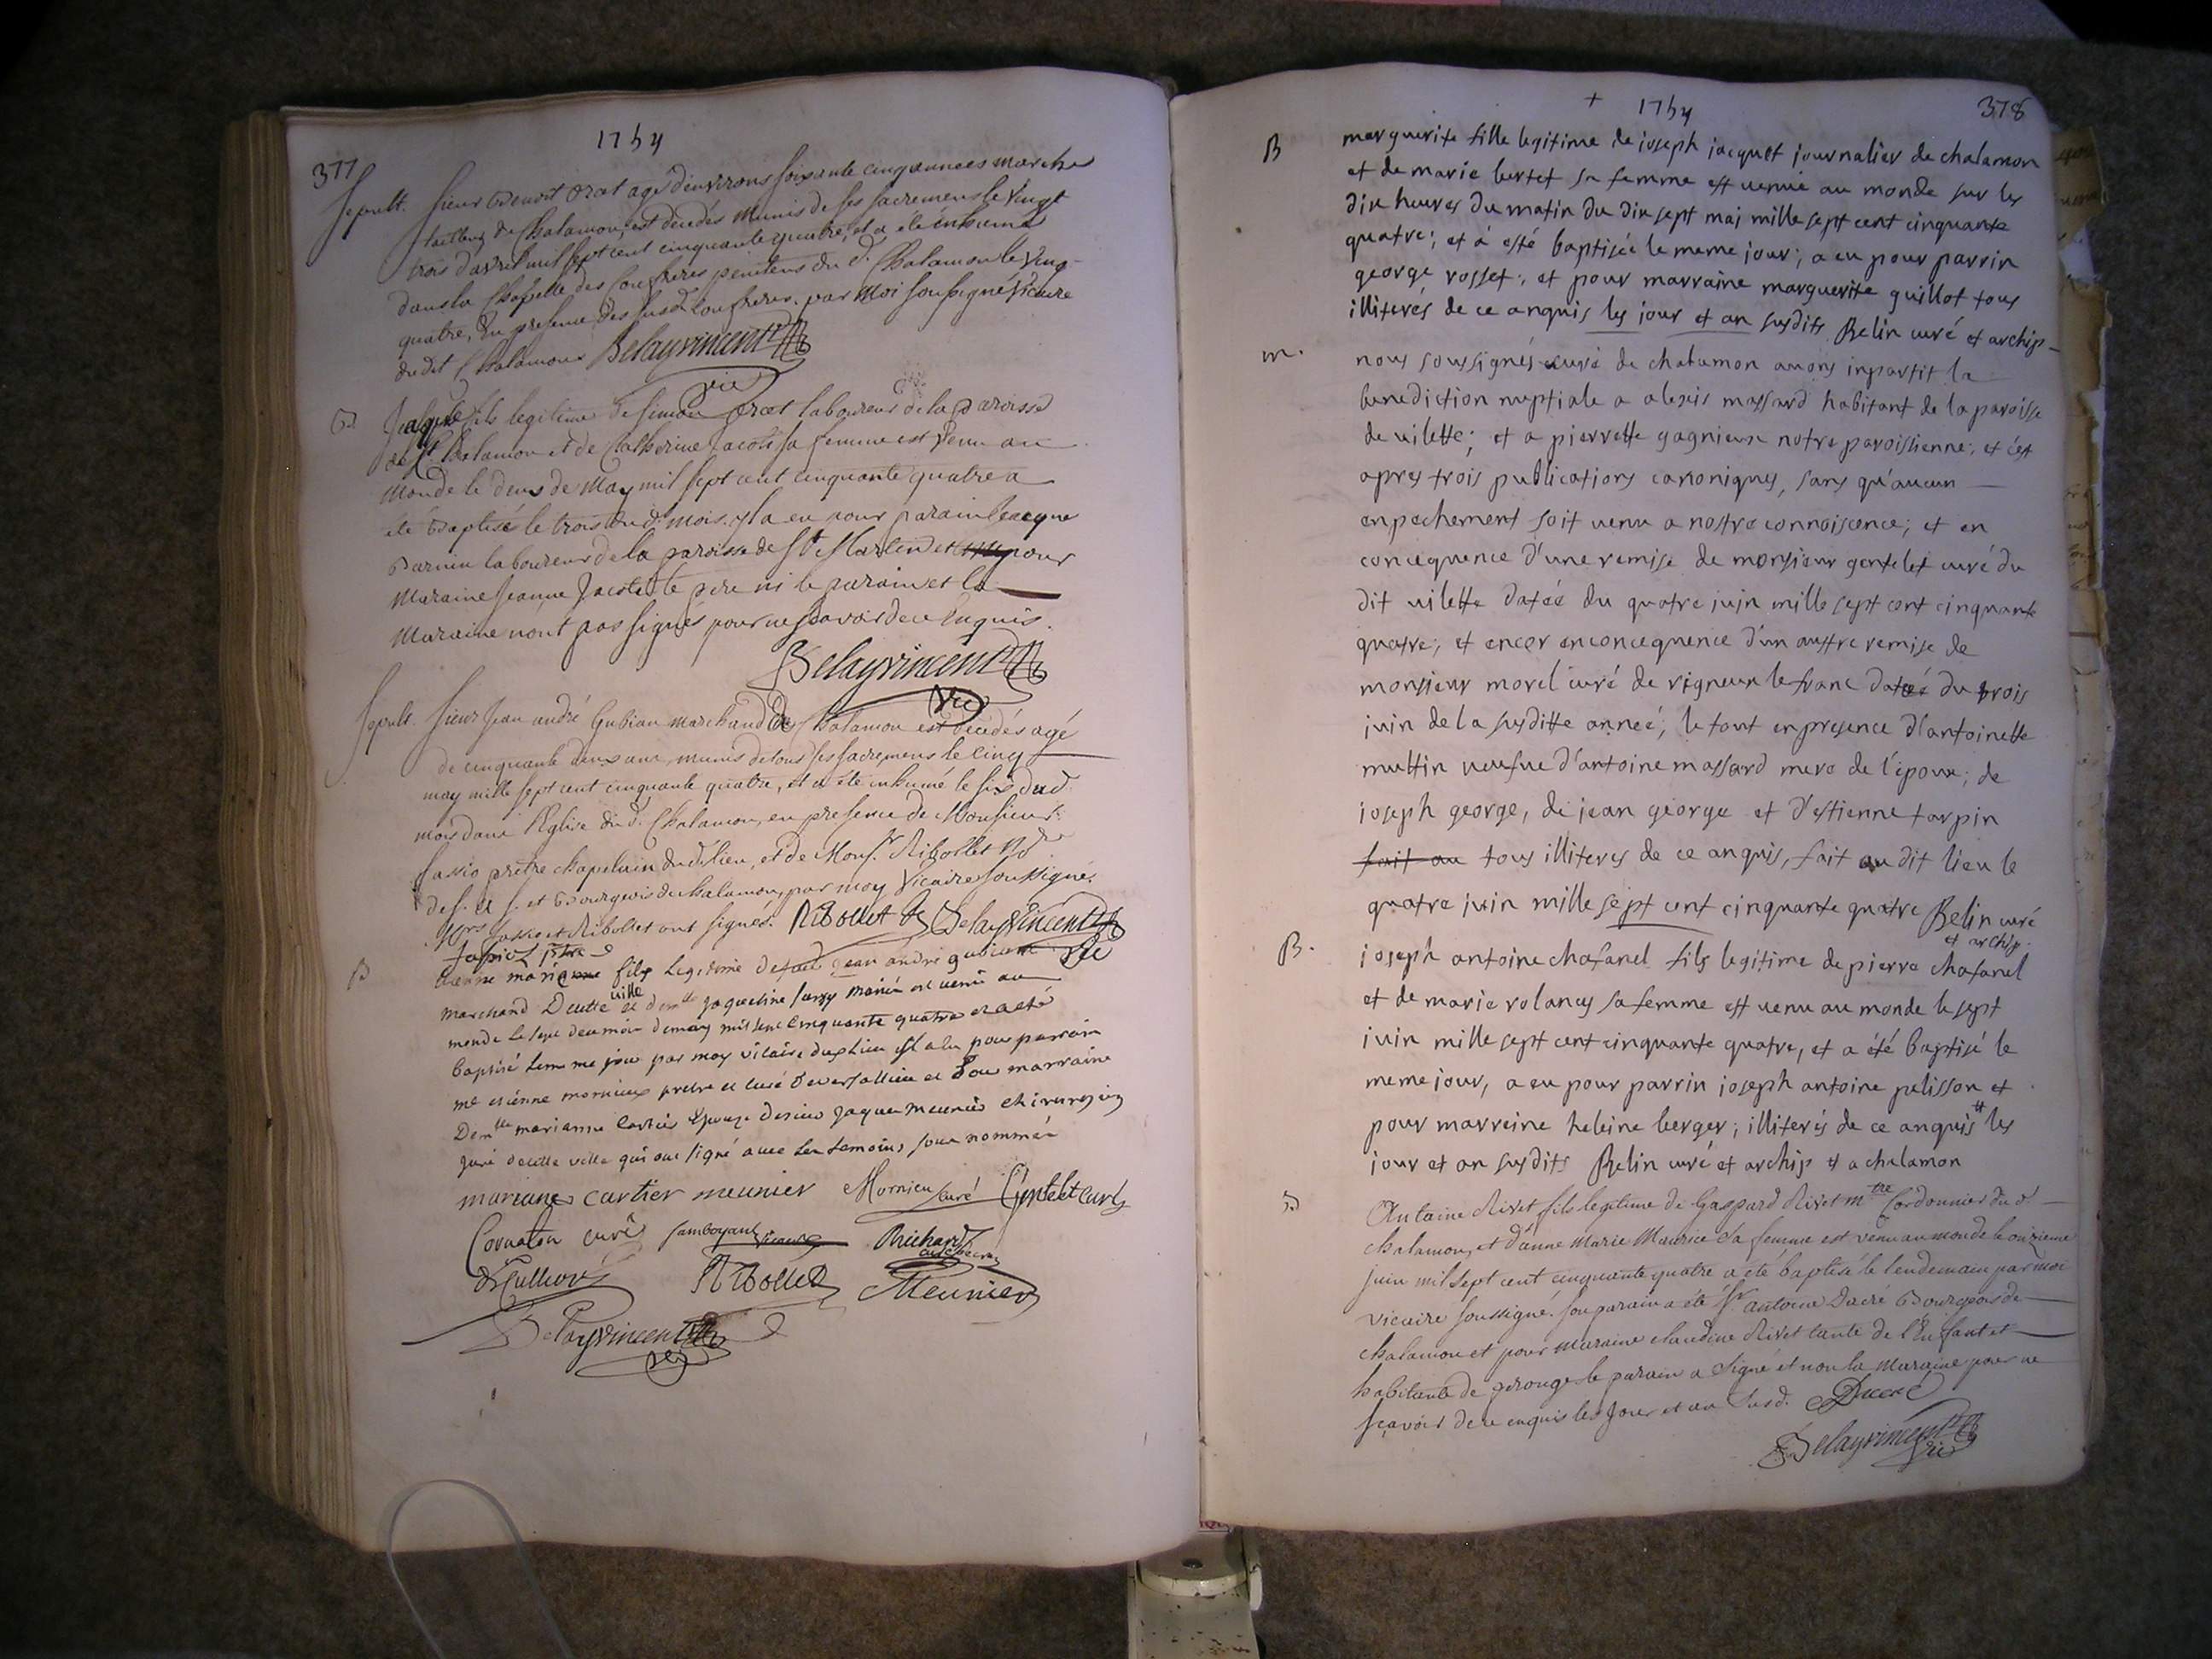 377
1754
Sepult. Sieur Benoit Orat agé d'environs soixante cinq années marchd
tailleur de Chalamon, est decédés munis de ses sacremens le vingt
trois d'avril mil sept cent cinquante quatre, et a été inhumé
dans la Chapelle des Confreres penitens du d. Chalamon le vingt
quatre, En presence des susd. confreres. par Moi soussigné Vicaire
du dit Chalamon Belayvincent
vic
B Jacque fils legitime de Simon oret laboureur de la paroisse
de Chalamon et de Catherine Jacote sa femme est venu au
Monde le deux de May mil sept cent cinquante quatre a
été Baptisé le trois du d. mois. il a eu pour parain Jacque
laboureur de la paroisse de St Martin et pour
Maraine Jeanne Jacote le pere ni le parain et la
Maraine n'ont pas signés pour ne sçavoir de ce Enquis.
Belayvincent
vic
Sepult. Sieur Jean andré Gubian marchand de Chalamon est decédés agé
de cinquante deux ans, munis de tous ses sacremens le cinq
may mille sept cent cinquante quatre, et a été inhumé le six dud.
mois dans l'Eglise du d. Chalamon, en presence de Monsieur
prêtre chapelain dud. lieu, et de Mons.r Ribollet
et Bourgeois de Chalamon, par moy Vicaire soussigné.
et Ribollet ont signés. Ribollet Belayvincent
vic
B marie fils Legitime de jean andré gubian
marchand Decette ville et demlle jaqueline mariés est venu au
monde le sept deumoir demay mil sept cinquante quatre et a eté
baptisé leme me jour par moy vicaire duplieu il a eu pour parrain
me etiénne mornieux pretre et curé deversallieu et Pour marraine
Demlle marianne Cartier Epouze desieur jaque meunier chirurgien
juré decette ville qui ont signé avec les temoins sous nommés
mariane cartier meunier Mornieu curé Gentelet curé
Cornaton curé vicaire Richard
Ribollet Meunier
Belayvincent
vic
+ 1754 378
B marguerite fille legitime de joseph jacquet journalier de chalamon
et de marie bertet sa femme est venuë au monde sur les
dix heures du matin du dix sept mai mille sept cent cinquante
quatre; et a esté baptisée le meme jour; a eu pour parrin
george rosset; et pour marraine marguerite guillot tous
illiterés de ce anquis les jour et an susdits Belin curé et archip
m. nous soussignés curé de chalamon avons inpartit la
benediction nuptiale a alexis massard habitant de la paroisse
de vilette; et a pierrette gagnieux notre paroissienne; et c'est
apres trois publications canoniques, sans qu'aucun
enpechement soit venu a nostre connoiscence; et en
concequence d'une remise de monsieur gentelet curé du
dit vilette datée du quatre juin mille sept cent cinquante
quatre; et encor enconcequence d'un austre remise de
monsieur morel curé de rigneux le franc datée du trois
juin de la susditte année; le tout enpresence d'antoinette
muttin veufve d'antoine massard mere de l'époux; de
joseph george, de jean george et d'estienne tarpin
fait au tous illiteres de ce anquis, fait au dit lieu le
quatre juin mille sept cent cinquante quatre Belin curé
et archip.
B. joseph antoine chafanel fils legitime de pierre chafanel
et de marie rolancy sa femme est venu au monde le sept
juin mille sept cent cinquante quatre, et a été baptisé le
meme jour, a eu pour parrin joseph antoine pelisson et
pour marreine heleine berger; illiterés de ce anquis les
jour et an susdits Belin curé et archip # a chalamon
B Antoine Rivet fils legitime de Gaspard Rivet mtre Cordonnier du d
chalamon, et d'anne Marie Maurice sa femme est venu au monde le onzieme
juin mil sept cent cinquante quatre a été baptisé le lendemain par moi
vicaire soussigné. son parain a été Sr antoine Ducré Bourgeois de
chalamon et pour maraine claudine Rivet tante de l'Enfant et
habitante de perouge le parain a signé et non la maraine pour ne
sçavoir de ce enquis les Jour et an Susd. Ducré
Belayvincent
vic